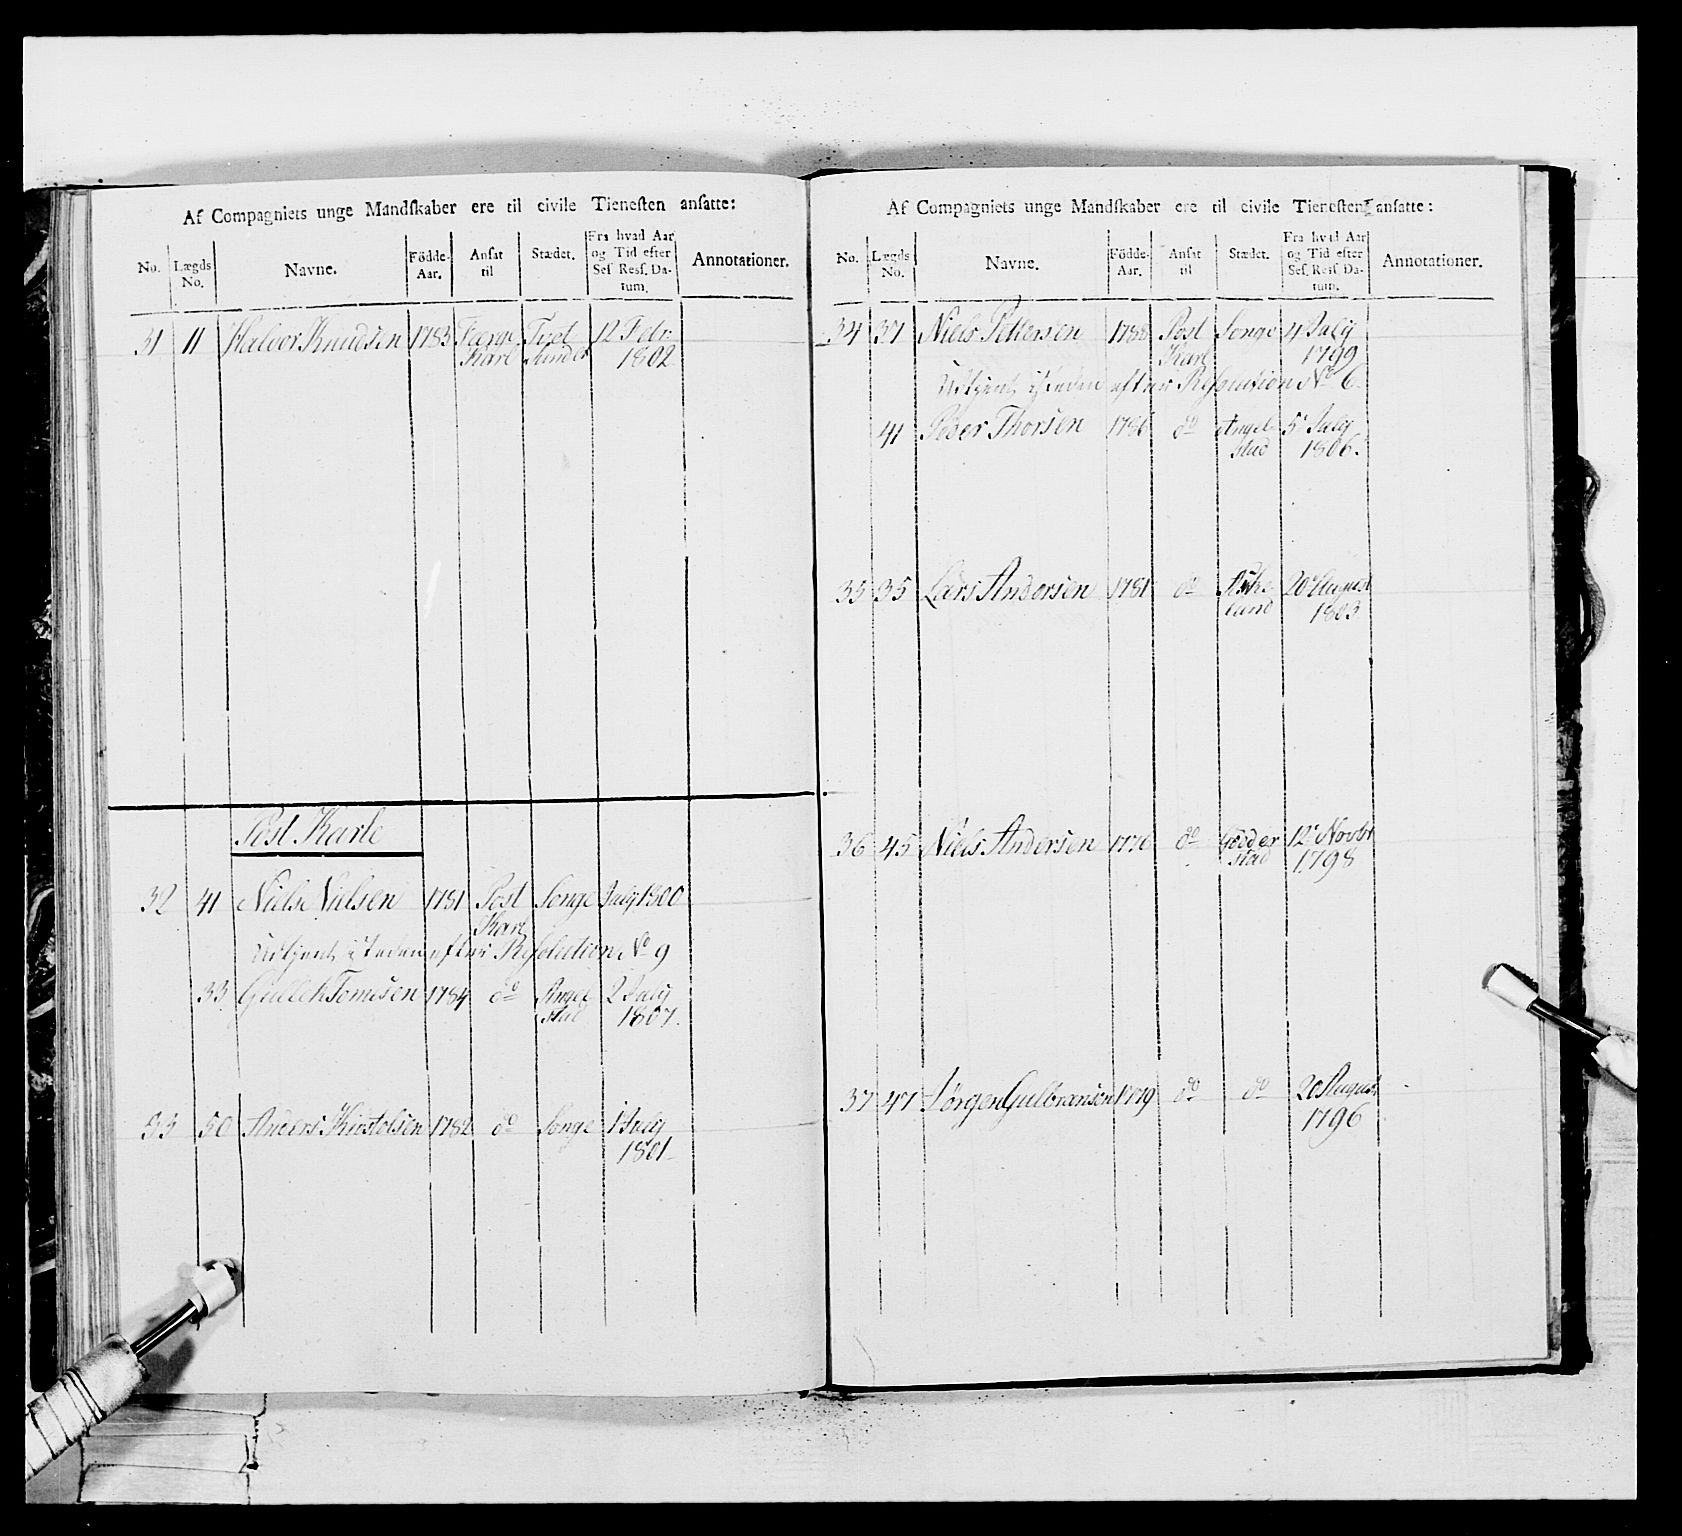 Af Compagniets unge Mandskaber ere til civile Tienesten ansatte:
No. Lægds No. Navne. Födde-Aar. Ansat til Stædet. Fra hvad Aar og Tid efter Ses. Ress. Datum. Annotationer.
31 11 Halvor Knudsen 1783 Færge Tvet 12 Febr:
Karl Sundet 1802.
Post Karle
32 41 Niels Nielsen 1781 Post Songe July 1800
Karl
Udtjent isteden efter Resolution No 9
33 Gullek Tomesen 1784 do Angel 2 July
stad 1807.
33 50 Anders Kirstolsen 1782 do Songe 1 July
1801
Af Compagniets unge Mandskaber ere til civile Tienesten ansatte:
No. Lægds No. Navne. Födde-Aar. Ansat til Stædet. Fra hvad Aar og Tid efter Ses. Ress. Datum. Annotationer.
34 37 Niels Pettersen 1788 Post Songe 4 July
Karl 1799
Udtjent isteden efter Resolution No 6.
41 Peder Thorsen 1786 do Angel 5 July
stad 1806.
35 35 Lars Andersen 1781 do Aske 20 August
land 1803
36 45 Niels Andersen 1776 do Gödder 12 Novbr
stad 1798
37 47 Jörgen Gulbransen 1779 do do 20 August
1796